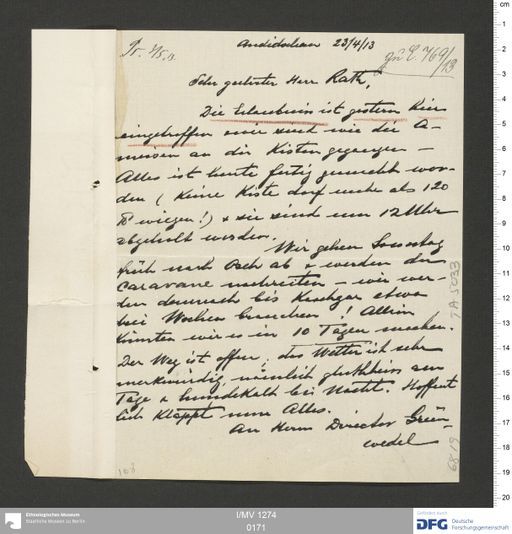 Pr. 7/5.13.
Andidschan 23/4/13
zu E. 769/13
Sehr geehrter Herr Rath,
Die Erlaubniss ist gestern hier
eingetroffen und wir sind wie die A-
meisen an die Kisten gegangen –
Alles ist heute fertig gemacht wor-
den (Keine Kiste darf mehr als 120
℔ wiegen!) & sie sind um 12 Uhr
abgeholt worden.
Wir gehen Sonntag
früh nach Osch ab & werden der
Caravane nachreiten – wir wer-
den demnach bis Kaschgar etwa
drei Wochen brauchen! Allein
könnten wir es in 10 Tagen machen.
Der Weg ist offen; das Wetter ist sehr
merkwürdig, nämlich glühheiss am
Tage & hundekalt bei Nacht. Hoffent
lich klappt nun Alles.
An Herrn Director Grün-
wedel
TA 5033
6819
103
cm
1
2
3
4
5
6
7
8
9
10
11
12
13
14
15
16
17
18
19
20
Ethnologisches Museum
Staatliche Museen zu Berlin
I/MV 1274
0171
Gefördert durch
DFG Deutsche
Forschungsgemeinschaft